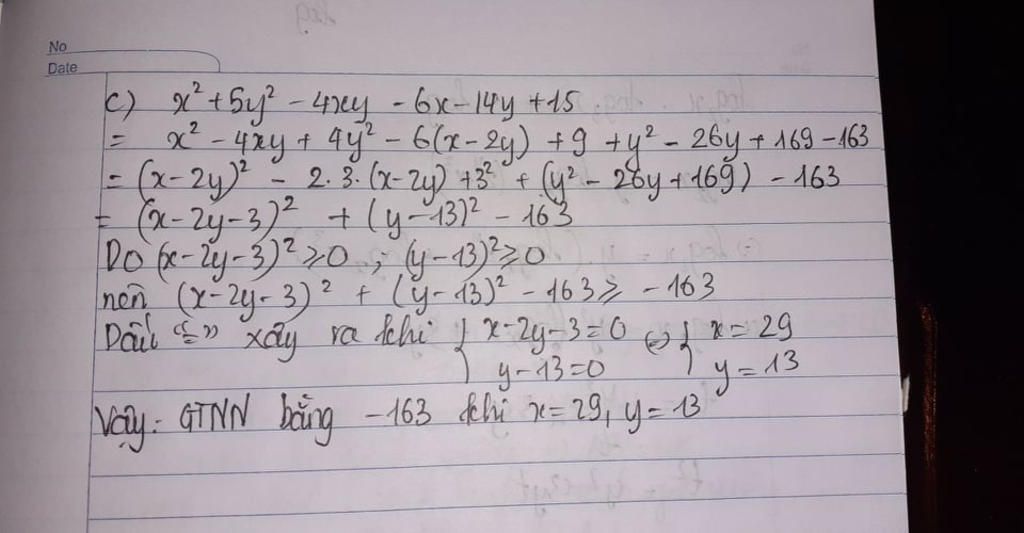 No
Date
c) x² + 5y² - 4xy - 6x - 14y + 15
= x² - 4xy + 4y² - 6(x - 2y) + 9 + y² - 26y + 169 - 163
= (x - 2y)² - 2.3.(x - 2y) + 3² + (y² - 26y + 169) - 163
= (x - 2y - 3)² + (y - 13)² - 163
Do (x - 2y - 3)² ≥ 0 ; (y - 13)² ≥ 0
nên (x - 2y - 3)² + (y - 13)² - 163 ≥ -163
Dấu "=" xảy ra khi { x - 2y - 3 = 0 ⇔ { x = 29
y - 13 = 0 y = 13
Vậy: GTNN bằng -163 khi x = 29, y = 13